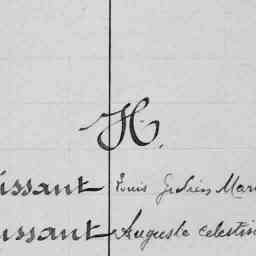 H.
issant Louis Julien Mari
ussant Auguste Celestin